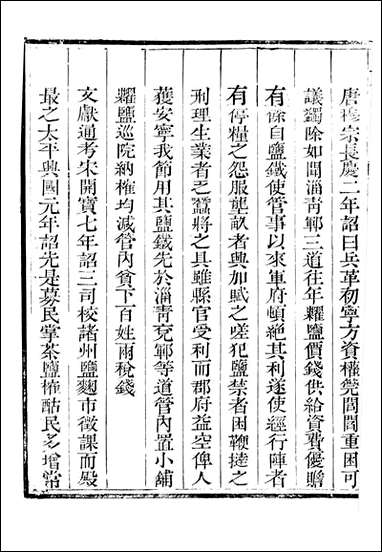 唐穆宗長慶二年詔曰兵革初寧方資榷筦閭閻重困可
議蠲除如聞淄青鄆三道往年糶鹽價錢供給資費優贍
有餘自鹽鐵使管事以來軍府頓絶其利遂使經行陣者
有停糧之怨服壟畝者興加賦之嗟犯鹽禁者困鞭撻之
刑理生業者乏蠶將之具雖縣官受利而郡府益空俾人
獲安寧我節用其鹽鐵先於淄青兖鄆等道管內置小舖
糶鹽巡院納榷均減管內貧下百姓兩稅錢
文獻通考宋開寶七年詔三司校諸州鹽麴市徵課而殿
最之太平興國元年詔先是募民掌茶鹽榷酤民多增常